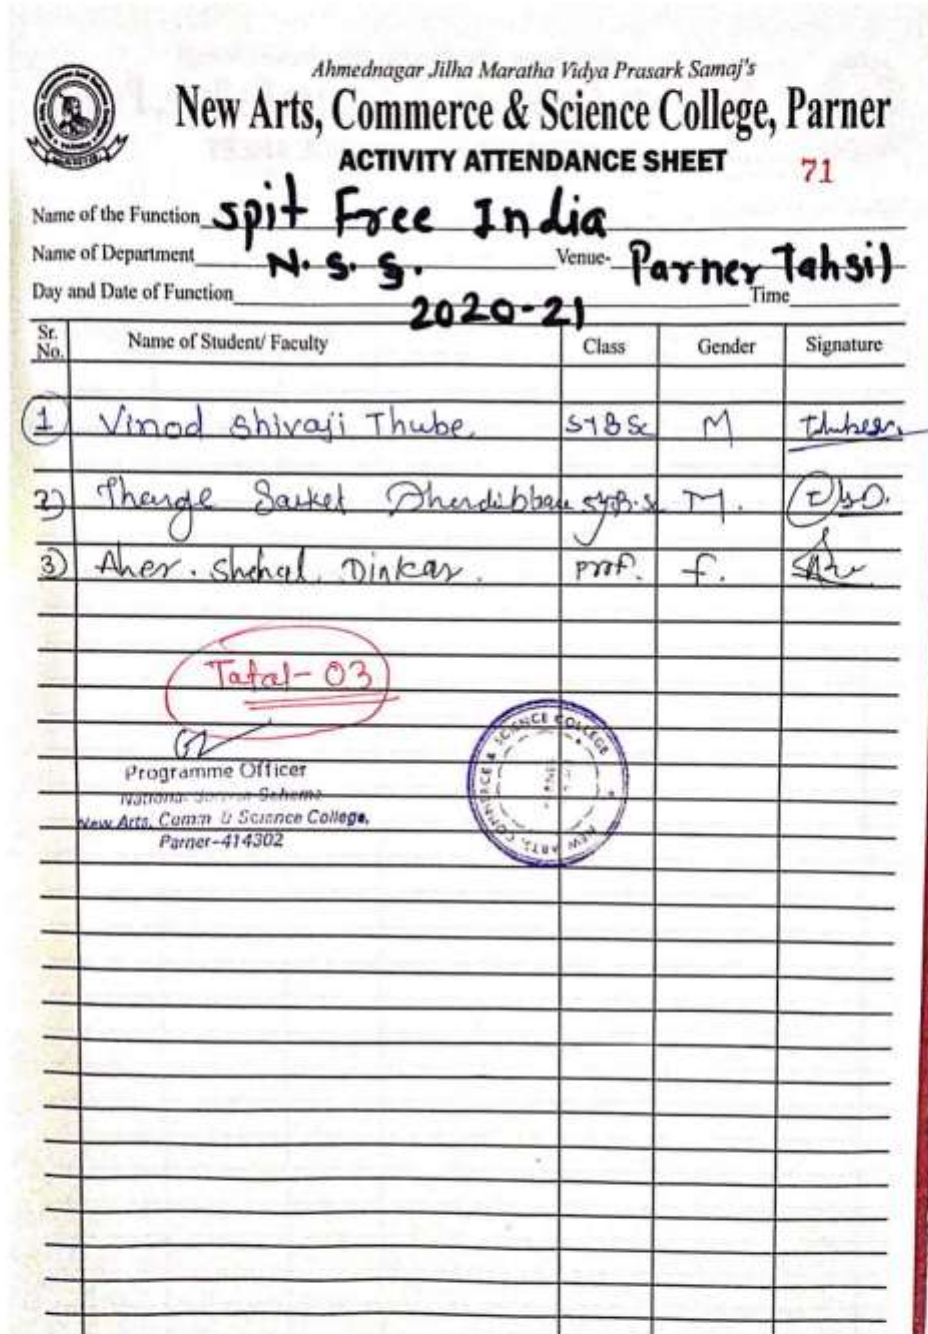 Ahmednagar Jilha Maratha Vidya Prasark Samaj's
New Arts, Commerce & Science College, Parner
ACTIVITY ATTENDANCE SHEET 71
Name of the Function Spit Free India
Name of Department N.S.S. Venue- Parner Tahsil
Day and Date of Function 2020-21 Time
Sr. No. Name of Student/ Faculty Class Gender Signature
1 Vinod Shivaji Thube. SYBSc M
2) Thange Saket SYB.Sc M.
3) Aher. Snehal Dinkar. Prof. f.
Total- 03
Programme Officer
National Scheme
New Arts, Comm & Science College,
Parner-414302
NEW ARTS, COMMERCE & SCIENCE COLLEGE